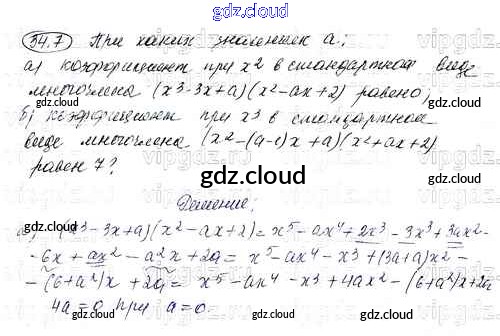 gdz.cloud
gdz.cloud
34.7 При каких значениях а:
а) коэффициент при x2 в стандартном виде
многочлена (x3-3x+a)(x2-ax+2) равен 0,
б) коэффициент при x3 в стандартном
виде многочлена (x2-(a-1)x+a)(x2+ax+2)
равен 7?
gdz.cloud
Решение:
(x3-3x+a)(x2-ax+2)=x5-ax4+2x3-3x3+3ax2-
-6x+ax2-a2x+2a=x5-ax4-x3+(3a+a)x2-
-(6+a2)x+2a=x5-ax4-x3+4ax2-(6+a2)x+2a
4a=0 при a=0.
gdz.cloud
gdz.cloud